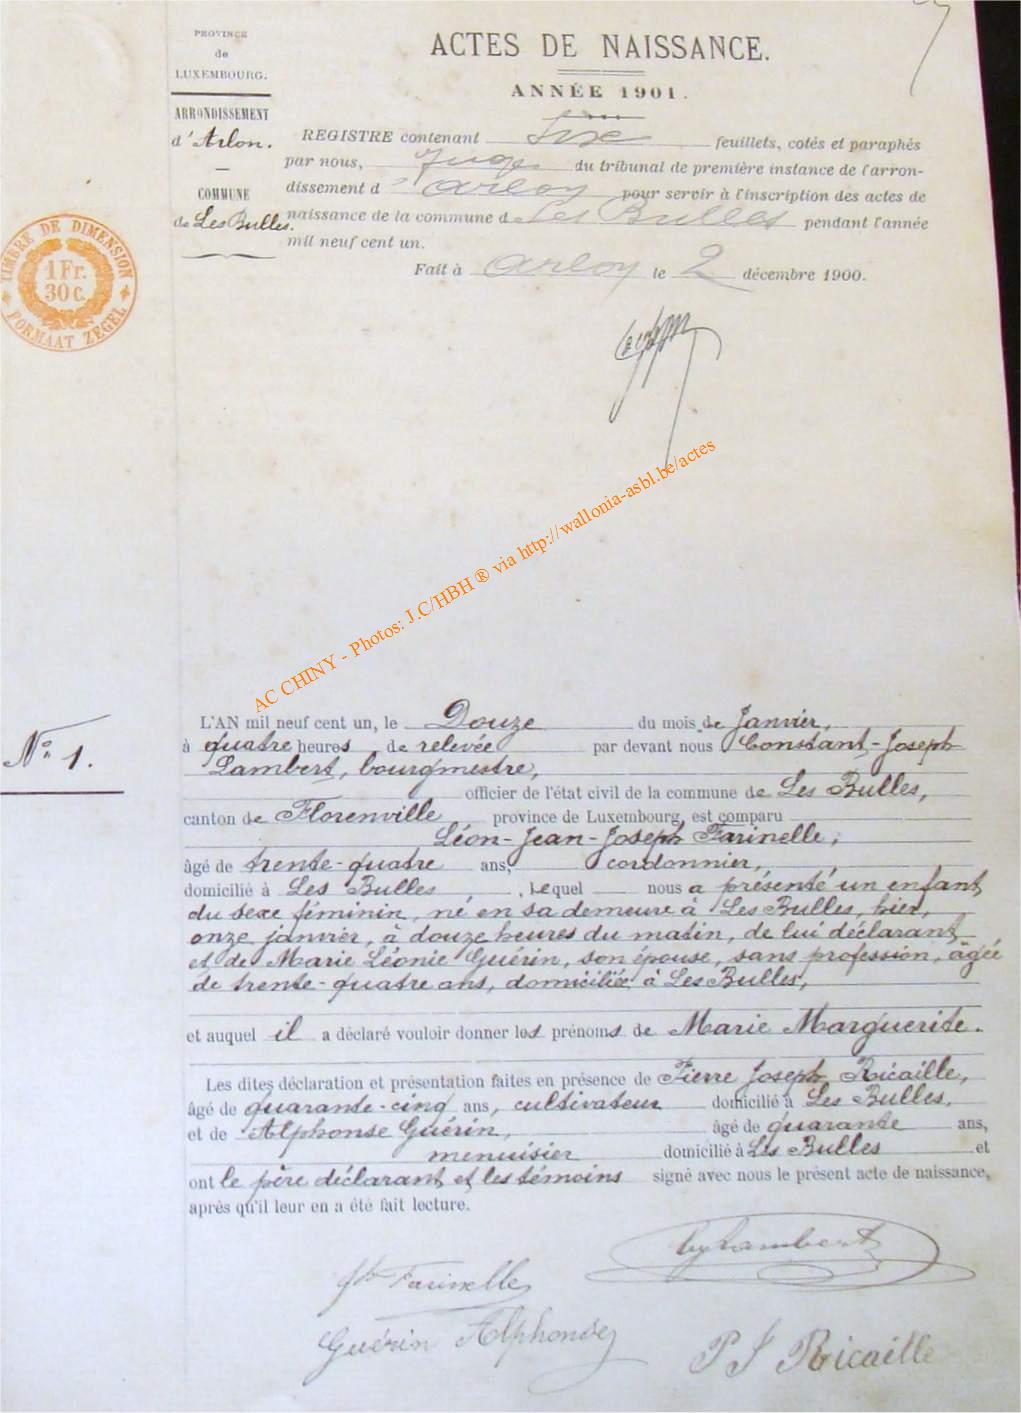 PROVINCE
de
LUXEMBOURG.
ARRONDISSEMENT
d'Arlon.
COMMUNE
de Les Bulles.
TIMBRE DE DIMENSION
1 Fr.
30 c.
FORMAAT ZEGEL
ACTES DE NAISSANCE.
ANNÉE 1901.
REGISTRE contenant feuillets, cotés et paraphés
par nous, Juge du tribunal de première instance de l'arron-
dissement d'Arlon pour servir à l'inscription des actes de
naissance de la commune de Les Bulles pendant l'année
mil neuf cent un.
Fait à Arlon le 2 décembre 1900.
AC CHINY - Photos: J.C/HBH ® via http://wallonia-asbl.be/actes
N° 1.
L'AN mil neuf cent un, le Douze du mois de Janvier,
à quatre heures de relevée par devant nous Constant-Joseph
Lambert, bourgmestre,
officier de l'état civil de la commune de Les Bulles,
canton de Florenville province de Luxembourg, est comparu
Léon-Jean-Joseph Farinelle,
âgé de trente-quatre ans, cordonnier,
domicilié à Les Bulles, lequel nous a présenté un enfant
du sexe féminin, né en sa demeure à Les Bulles, hier,
onze janvier, à douze heures du matin, de lui déclarant
et de Marie Léonie Guérin, son épouse, sans profession, âgée
de trente-quatre ans, domiciliée à Les Bulles,
et auquel il a déclaré vouloir donner les prénoms de Marie Marguerite.
Les dites déclaration et présentation faites en présence de Pierre Joseph Ricaille,
âgé de quarante-cinq ans, cultivateur domicilié à Les Bulles,
et de Alphonse Guérin, âgé de quarante ans,
menuisier domicilié à Les Bulles et
ont le père déclarant et les témoins signé avec nous le présent acte de naissance,
après qu'il leur en a été fait lecture.
Lambert
Farinelle
Guérin Alphonse
P J Ricaille